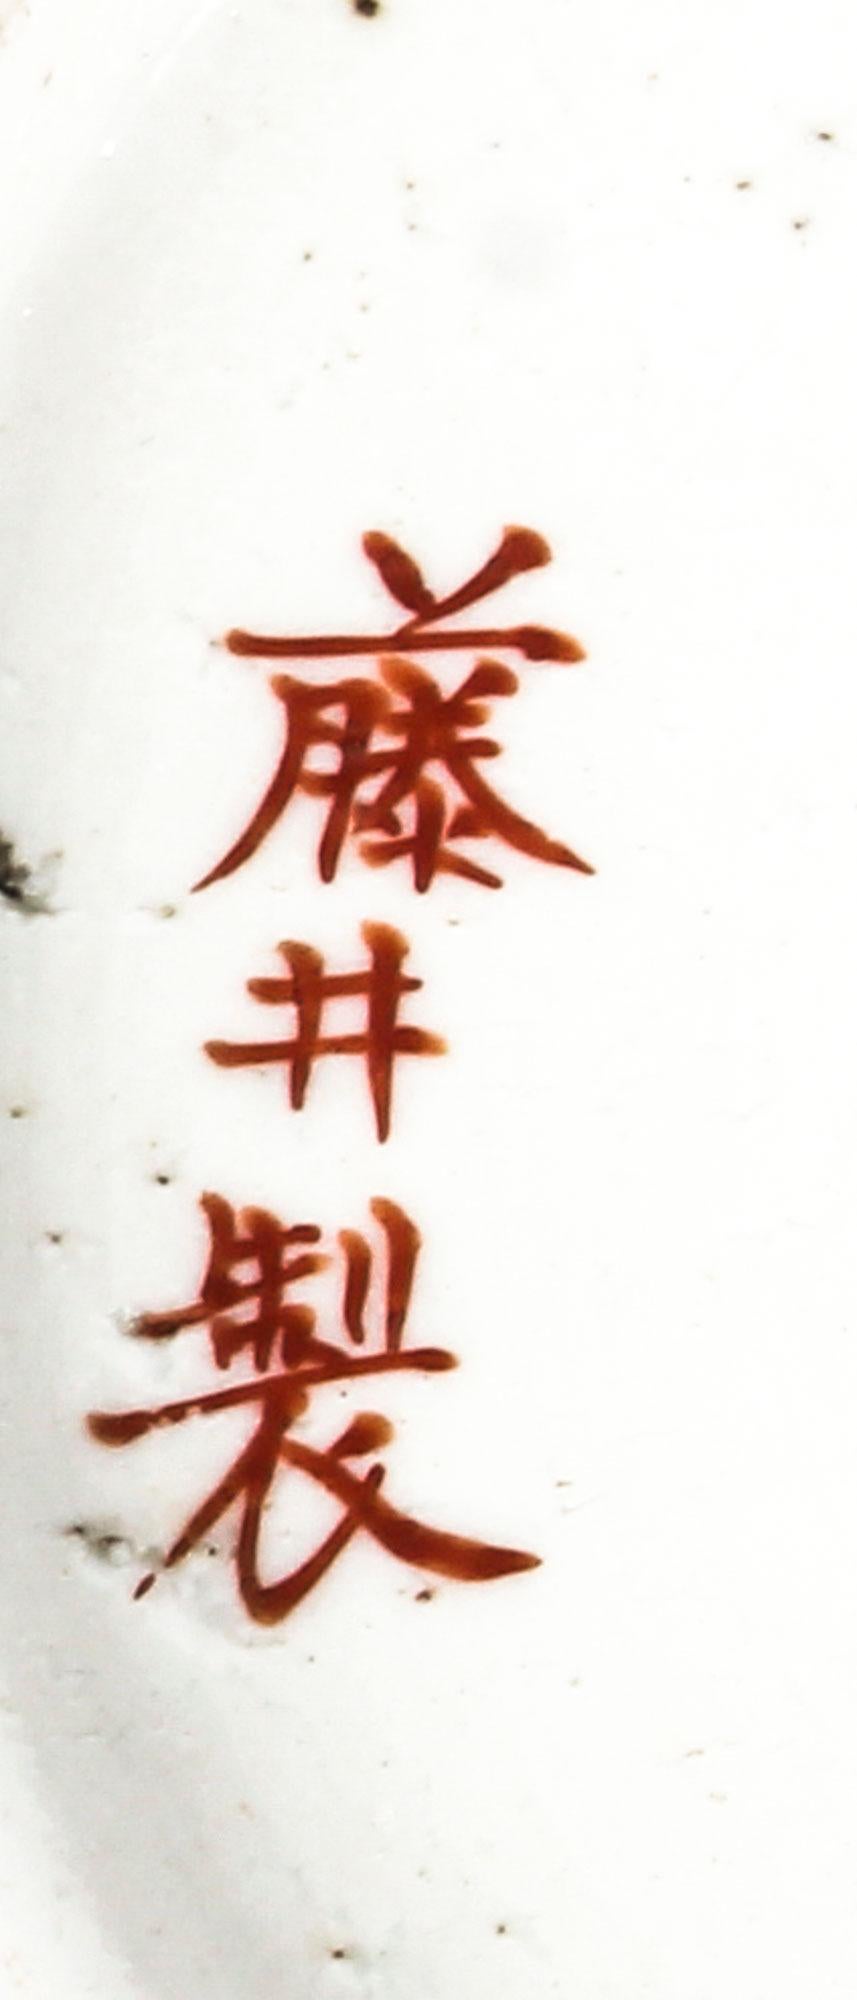 藤井製